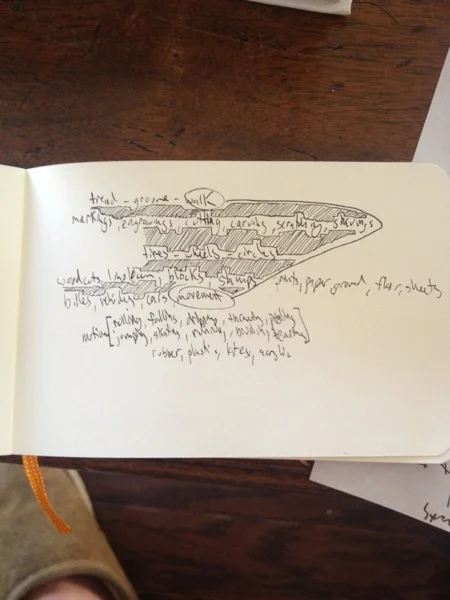 tread - groove - walk
markings, engravings, cutting, carving, scratching, shavings
tires - wheels - circles
woodcuts, linoleum, blocks, stamps
prints, paper, ground, floor, sheets
bikes, vehicles, cars, movement
motion [rolling, falling, dripping, throwing,
jumping, skating, running, brushing, tearing]
rubber, plastic, latex, acrylic